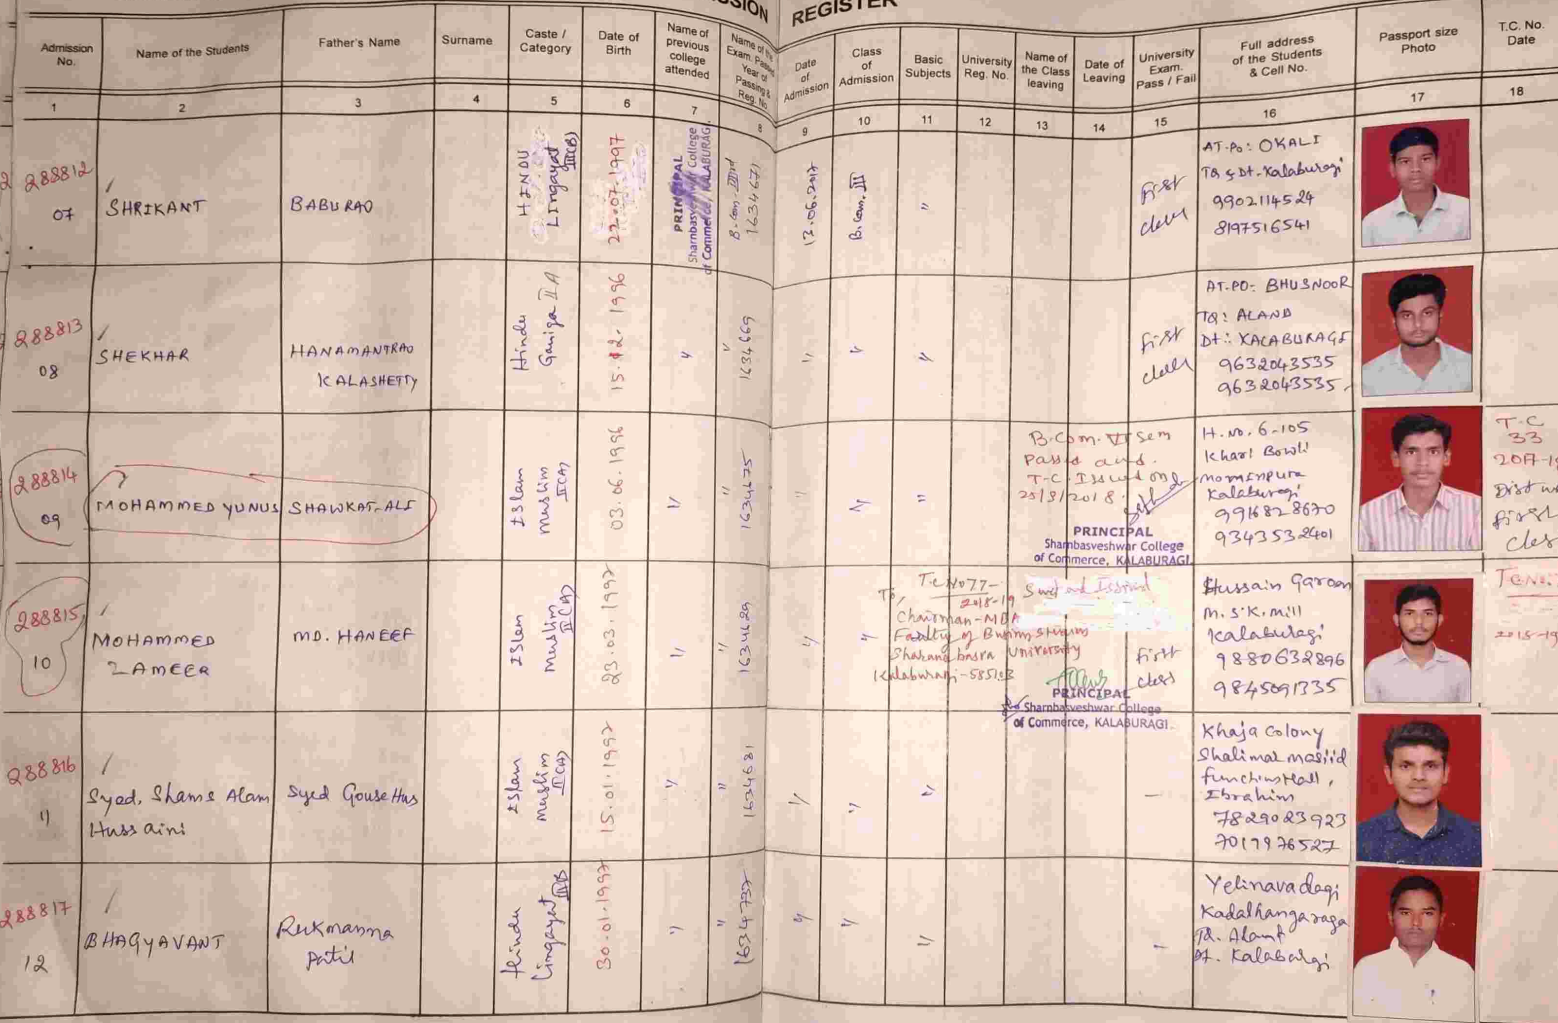 REGISTER
Admission No.
Name of the Students
Father's Name
Surname
Caste / Category
Date of Birth
Name of previous college attended
Name of the Exam. Passed Year of Passing & Reg. No.
Date of Admission
Class of Admission
Basic Subjects
University Reg. No.
Name of the Class leaving
Date of Leaving
University Exam. Pass / Fail
Full address of the Students & Cell No.
Passport size Photo
T.C. No. Date
1 2 3 4 5 6 7 8 9 10 11 12 13 14 15 16 17 18
288812
07
SHRIKANT
BABURAO
HINDU
Lingayat
III(B)
22.07.1997
PRINCIPAL
Sharnbasveshwar College
of Commerce, KALABURAGI
B.Com. IIIrd
1634671
13.06.2017
B.Com. III
"
First
class
AT.Po: OKALI
TQ & Dt. Kalaburagi
9902114524
8197516541
288813
08
SHEKHAR
HANAMANTRAO
KALASHETTY
Hindu
Ganiga II A
1996
"
"
1634669
"
"
"
First
class
AT.PO:- BHUSNOOR
TQ: ALAND
Dt: KALABURAGI
9632043535
9632043535
288814
09
MOHAMMED YUNUS
SHAWKAT-ALI
ISlam
muslim
II(A)
03.06.1996
"
"
1634675
"
"
"
B.Com. VI Sem
Passed and
T.C. Issued on
25/8/2018
PRINCIPAL
Sharnbasveshwar College
of Commerce, KALABURAGI
H.No. 6-105
Khari Bowli
mominpura
Kalaburagi
9916828670
9343532401
T.C
33
First
class
288815
10
MOHAMMED
ZAMEER
MD. HANEEF
ISlam
Muslim
II(A)
23.03.1997
"
"
1634629
"
"
TC No 77-
2018-19
To,
Chairman-MBA
Faculty of
Sharanabasva University
Kalaburagi-585103
PRINCIPAL
Sharnbasveshwar College
of Commerce, KALABURAGI
First
class
Hussain Garden
M.S.K.Mill
Kalaburagi
9880632896
9845091335
TC No.
2018-19
288816
11
Syed, Shams Alam
Hussaini
Syed Gouse Hus
ISlam
muslim
II(A)
15.01.1997
"
"
1634681
"
"
"
Khaja Colony
Shalimar masjid
function Hall,
Ibrahim
7829023923
7019976527
288817
12
BHAGYAVANT
Rukmanna
patil
Hindu
Lingayat
IIIB
30.01.1997
"
"
1634737
"
"
"
Yelinavadagi
TQ. Aland
Dt. Kalaburgi